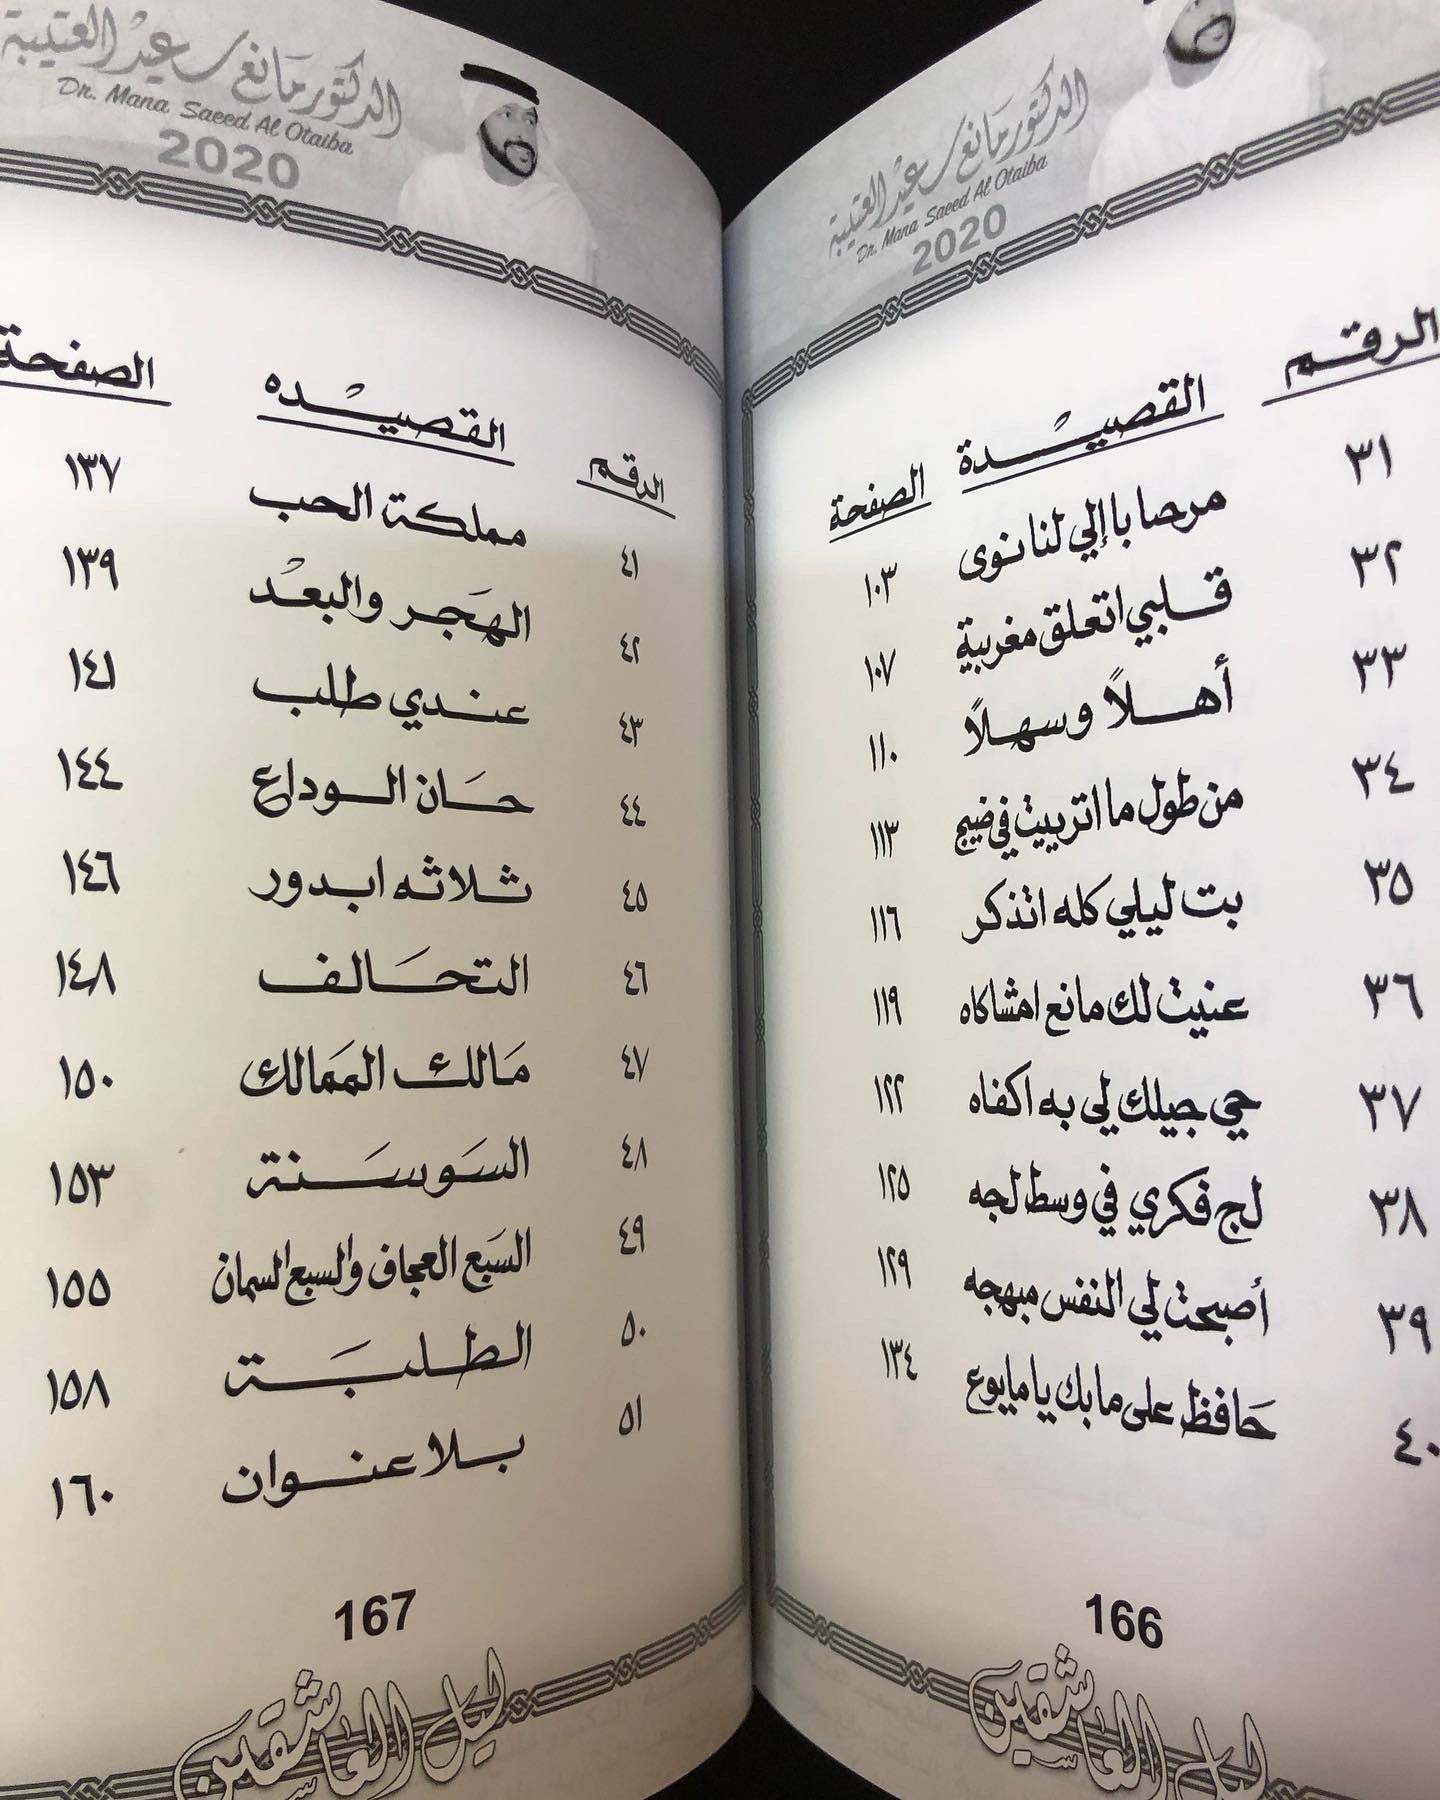 الدكتور مانع سعيد العتيبة
Dr. Mana Saeed Al Otaiba
2020
الرقم القصيدة الصفحة
٣١ مرحبا باللي لنا نوى ١٠٣
٣٢ قلبي اتعلق مغربية ١٠٧
٣٣ أهلاً وسهلاً ١١٠
٣٤ من طول ما اتربيت في ضيج ١١٣
٣٥ بت ليلي كله اتذكر ١١٦
٣٦ عنيت لك مانع امشاكاه ١١٩
٣٧ حي جيلك لي به اكفاه ١٢٢
٣٨ لج فكري في وسط لجه ١٢٥
٣٩ أصبحت لي النفس مبهجه ١٢٩
٤٠ حافظ على مابك يا مايوع ١٣٤
166
ليل العاشقين
الدكتور مانع سعيد العتيبة
Dr. Mana Saeed Al Otaiba
2020
الرقم القصيده الصفحة
٤١ مملكة الحب ١٣٧
٤٢ الهَجر والبعْد ١٣٩
٤٣ عندي طلب ١٤١
٤٤ حَان الوداع ١٤٤
٤٥ ثلاثه ابدور ١٤٦
٤٦ التحَالف ١٤٨
٤٧ مَالك الممَالك ١٥٠
٤٨ السَوسَنة ١٥٣
٤٩ السَبع العجاف والسبع السمان ١٥٥
٥٠ الطلبَة ١٥٨
٥١ بلا عنوان ١٦٠
167
ليل العاشقين